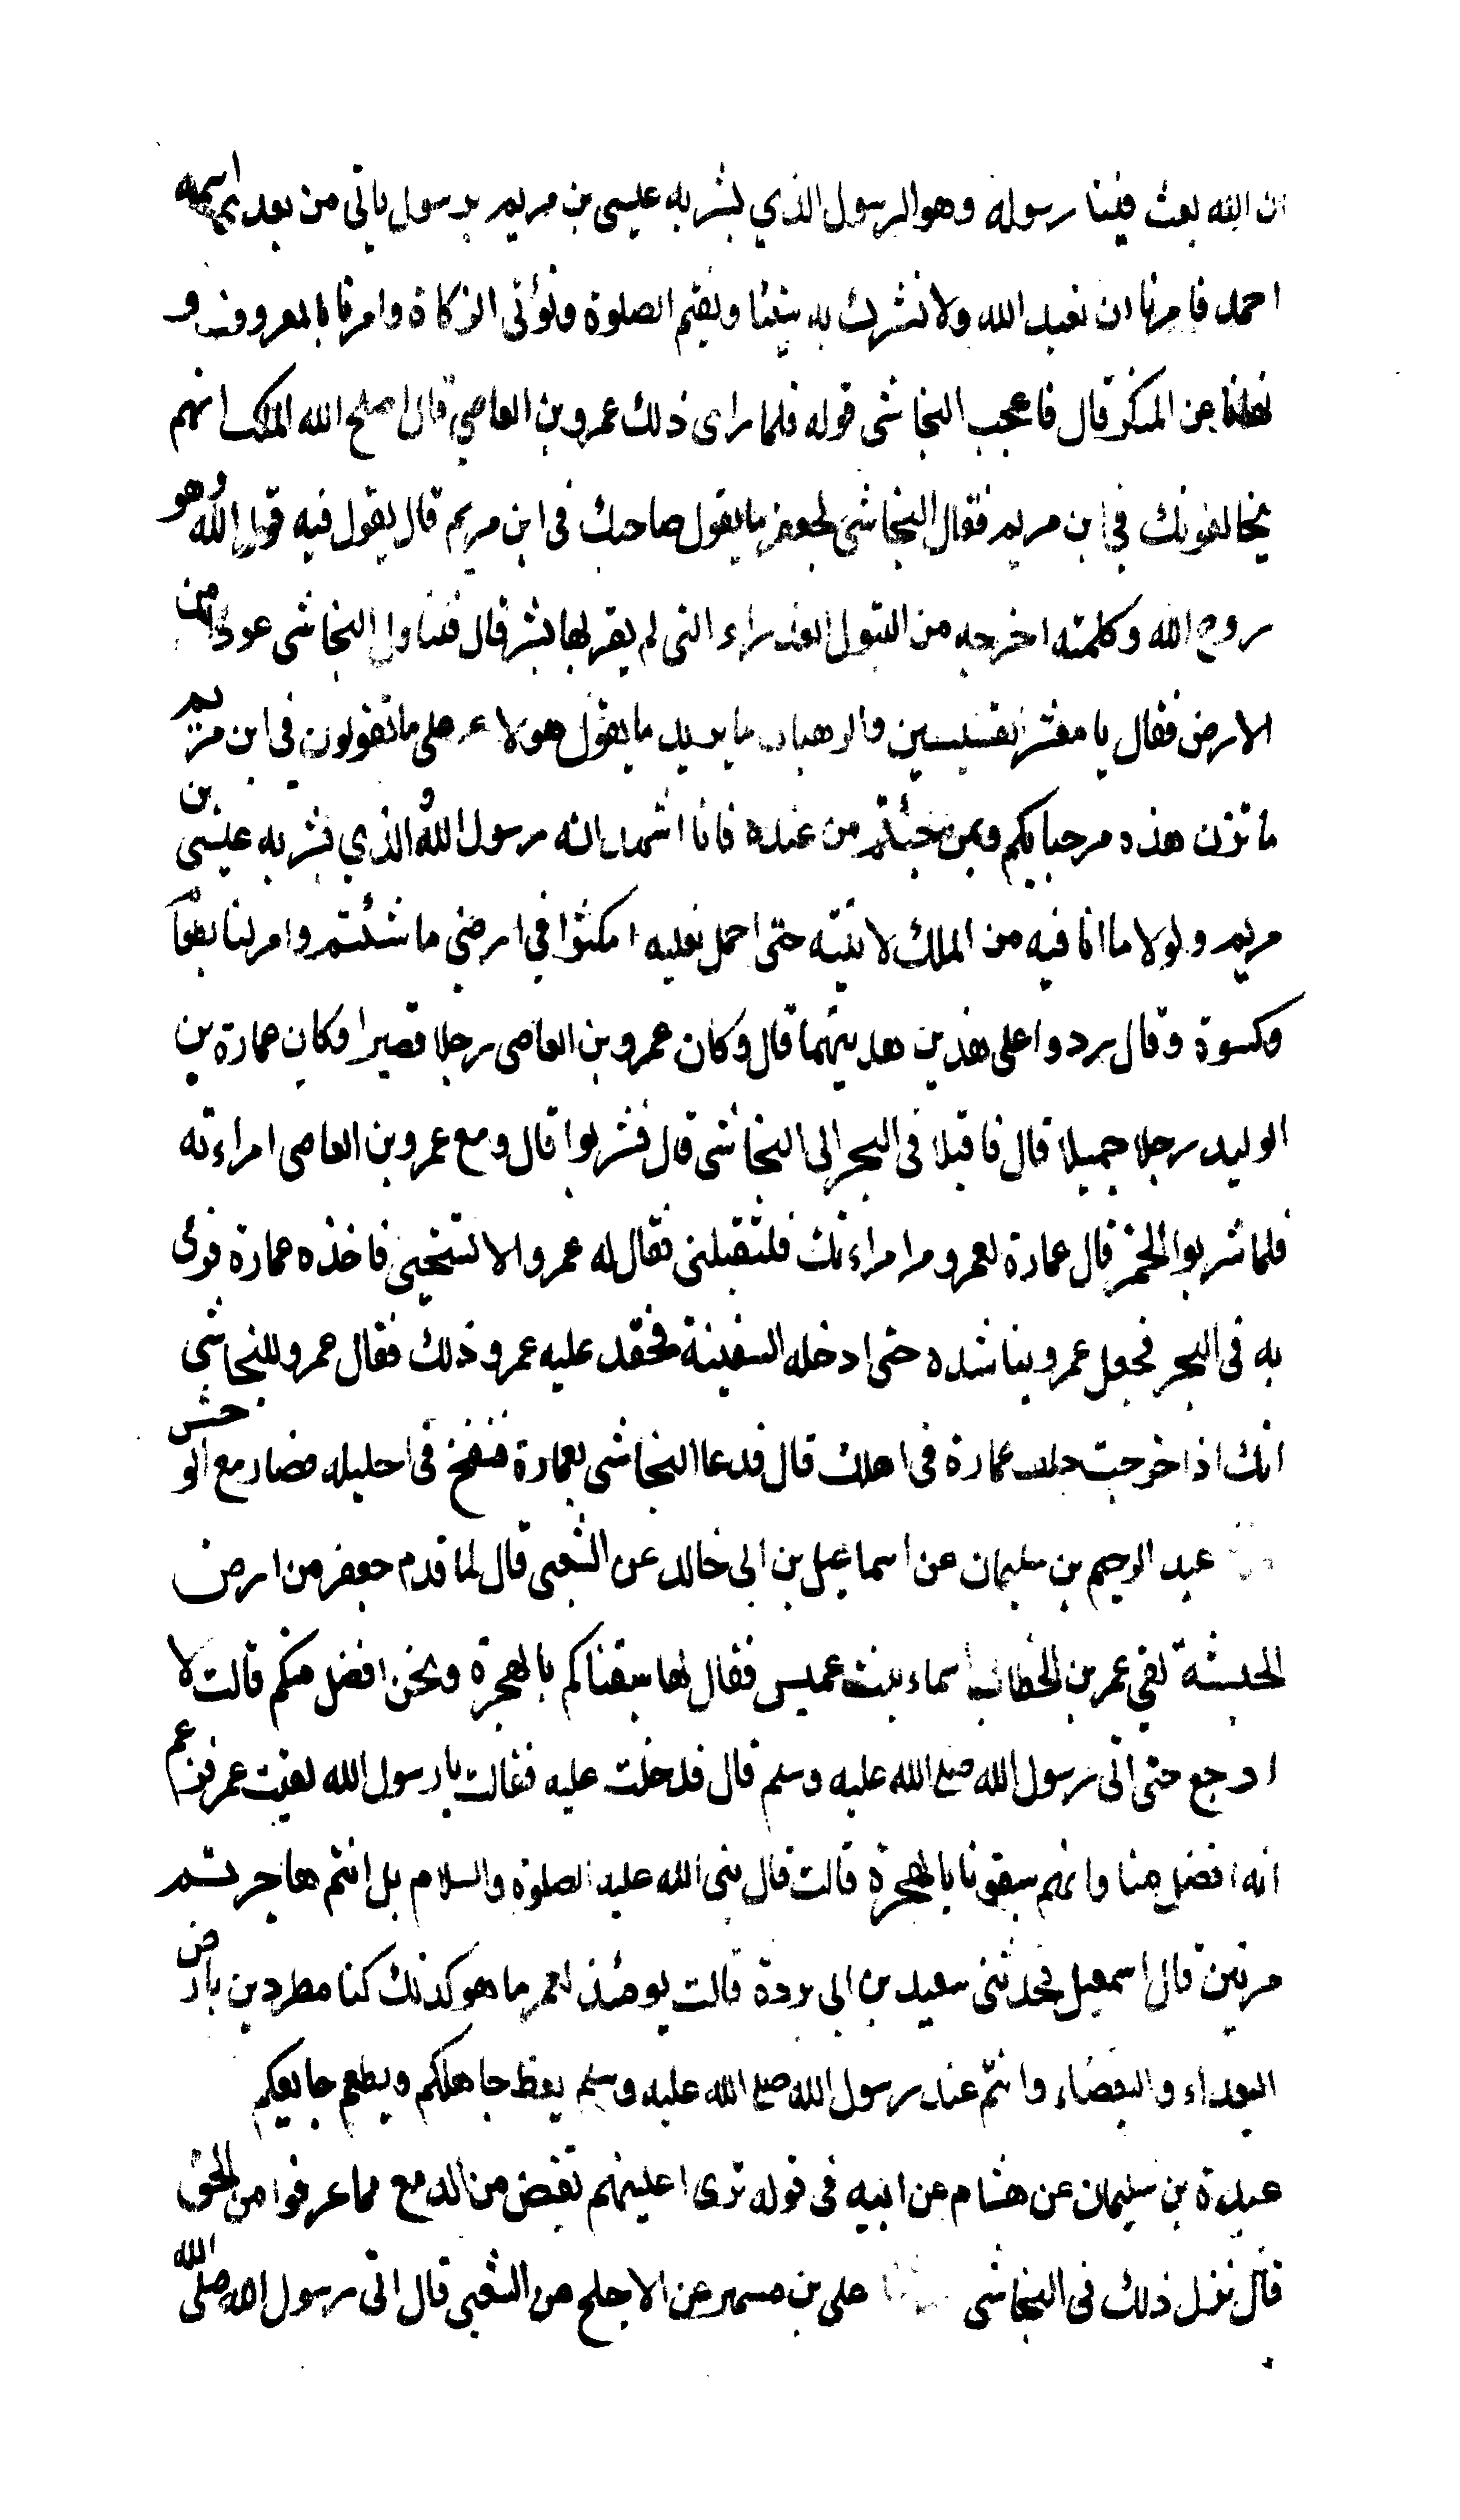 ان الله بعث فينا رسوله وهو الرسول الذي بشر به عيسى بن مريم برسول ياتى من بعدى اسمه
احمد فامرنا ان نعبد الله ولا نشرك به شيئا ونقيم الصلوة ونؤتى الزكاة وامرنا بالمعروف و
نهانا عن المنكر قال فاعجب النجاشى قوله فلما راى ذلك عمرو بن العاصي قال اصلح الله الملك انهم
يخالفونك في ابن مريم فقال النجاشى لجعفر ما يقول صاحبك فى ابن مريم قال يقول فيه قول الله هو
روح الله وكلمته اخرجه من البتول العذراء التى لم يقربها بشر قال فتناول النجاشى عودا من
الارض فقال يا معشر القسيسين والرهبان ما يريد ما يقول هولاء على ما تقولون في ابن مريم
ما تزن هذه مرحبا بكم وبمن جئتم من عنده فانا اشهد انه رسول الله الذي بشر به عيسى بن
مريم ولولا ما انا فيه من الملك لاتيته حتى احمل نعليه امكثوا في ارضي ما شئتم وامر لنا بطعام
وكسوة وقال ردوا على هذين هديتهما قال وكان عمرو بن العاصى رجلا قصيرا وكان عمارة بن
الوليد رجلا جميلا قال فاقبلا فى البحر الى النجاشى قال فشربوا قال ومع عمرو بن العاصى امراءته
فلما شربوا الخمر قال عمارة لعمرو مر امراءتك فلتقبلنى فقال له عمرو الا تستحيى فاخذه عمارة فرمى
به فى البحر فجعل عمرو يناشده حتى ادخله السفينة فحقد عليه عمرو ذلك فقال عمرو للنجاشي
انك اذا خرجت خلف عمارة فى اهلك قال فدعا النجاشى بعمارة فنفخ فى احليله فصار مع الوحش
عبد الرحيم بن سليمان عن اسماعيل بن ابى خالد عن الشعبى قال لما قدم جعفر من ارض
الحبشة لقي عمر بن الخطاب اسماء بنت عميس فقال لها سبقناكم بالهجرة ونحن افضل منكم قالت لا
ارجع حتى اتى رسول الله صلع الله عليه وسلم قال فدخلت عليه فقالت يا رسول الله لقيت عمر فزعم
انه افضل منا وانهم سبقونا بالهجرة قالت قال نبى الله عليه الصلوة والسلام بل انتم هاجرتم
مرتين قال اسمعيل فحدثنى سعيد بن ابى بردة قالت يومئذ لعمر ما هو كذلك كنا مطردين بارض
البعداء والبغضاء وانتم عند رسول الله صلع الله عليه وسلم يعظ جاهلكم ويطعم جايعكم
عبدة بن سليمان عن هشام عن ابيه فى قوله ترى اعينهم تفيض من الدمع مما عرفوا من الحق
قال نزل ذلك فى النجاشى علي بن مسهر عن الاجلح عن الشعبى قال اتى رسول الله صلى الله